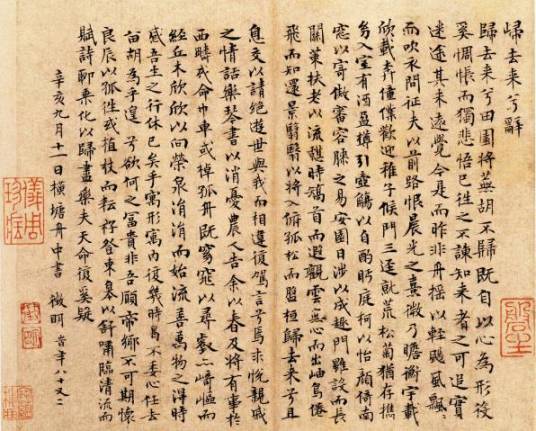 歸去来兮辭
歸去来兮田園将蕪胡不歸既自以心為形役
奚惆悵而獨悲悟已往之不諫知来者之可追寔
迷途其未遠覺今是而昨非舟摇以輕颺風飄飄
而吹衣問征夫以前路恨晨光之熹微乃瞻衡宇載
欣載奔僮僕歡迎稚子候門三逕就荒松菊猶存携
幼入室有酒盈罇引壺觴以自酌眄庭柯以怡顔倚南
窓以寄傲審容膝之易安園日涉以成趣門雖設而長
關策扶老以流憩時矯首而遐觀雲無心而出岫鳥倦
飛而知還景翳翳以将入孤松而盤桓歸去来兮且
息交以請絶逰世與我而相違復駕言兮焉求悦親戚
之情話樂琴書以消憂農人告余以春及将有事於
西疇或命巾車或棹孤舟既窈窕以尋壑亦崎嶇而
經丘木欣欣以向榮泉涓涓而始流善萬物之得時
感吾生之行休已矣乎寓形寓内復幾時曷不委心任去
留胡為乎遑兮欲何之富貴非吾願帝鄉不可期懷
良辰以孤往或植杖而耘耔登東皋以舒嘯臨清流而
賦詩聊乗化以歸盡樂夫天命復奚疑
辛亥九月十一日横塘舟中書 徵明 旹年八十又二